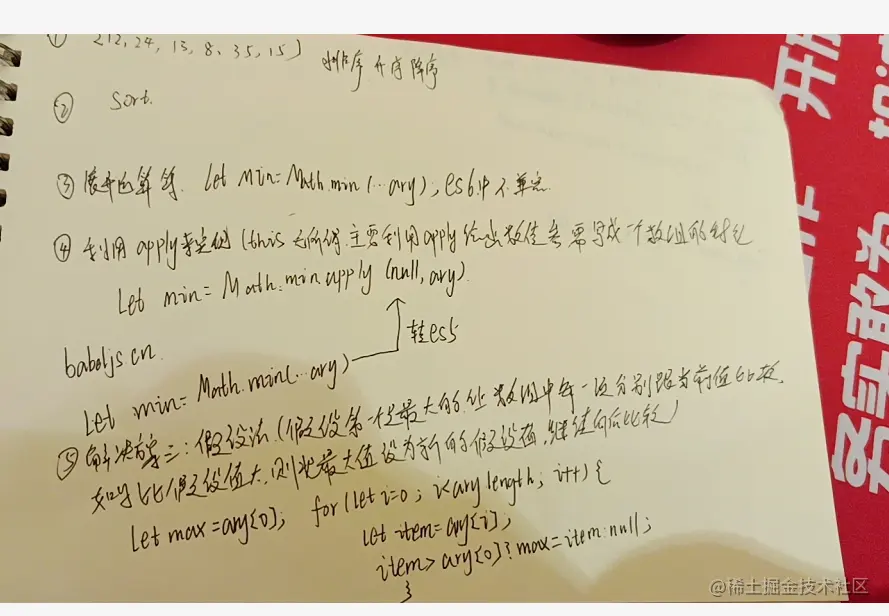 ① [12, 24, 13, 8, 35, 15] 排序 升序 降序
② Sort.
③ 展开运算符. let min=Math.min(...ary), es6中
④ 利用 apply (this 无所谓.主要利用apply 数组的
let min= Math.min.apply (null, ary).
转es5
babeljs cn.
let min= Math.min(...ary)
⑤ 解决方案二:假设法.(假设第一个是最大的,让数组中每一项分别跟当前值比较,
如 比假设值大,则把最大值设为新的假设值,继续向后比较)
let max=ary[0]; for(let i=0; i<ary length; i++) {
let item=ary[i];
item> ary[0]? max=item:null;
}
开放
务实敢为
@稀土掘金技术社区